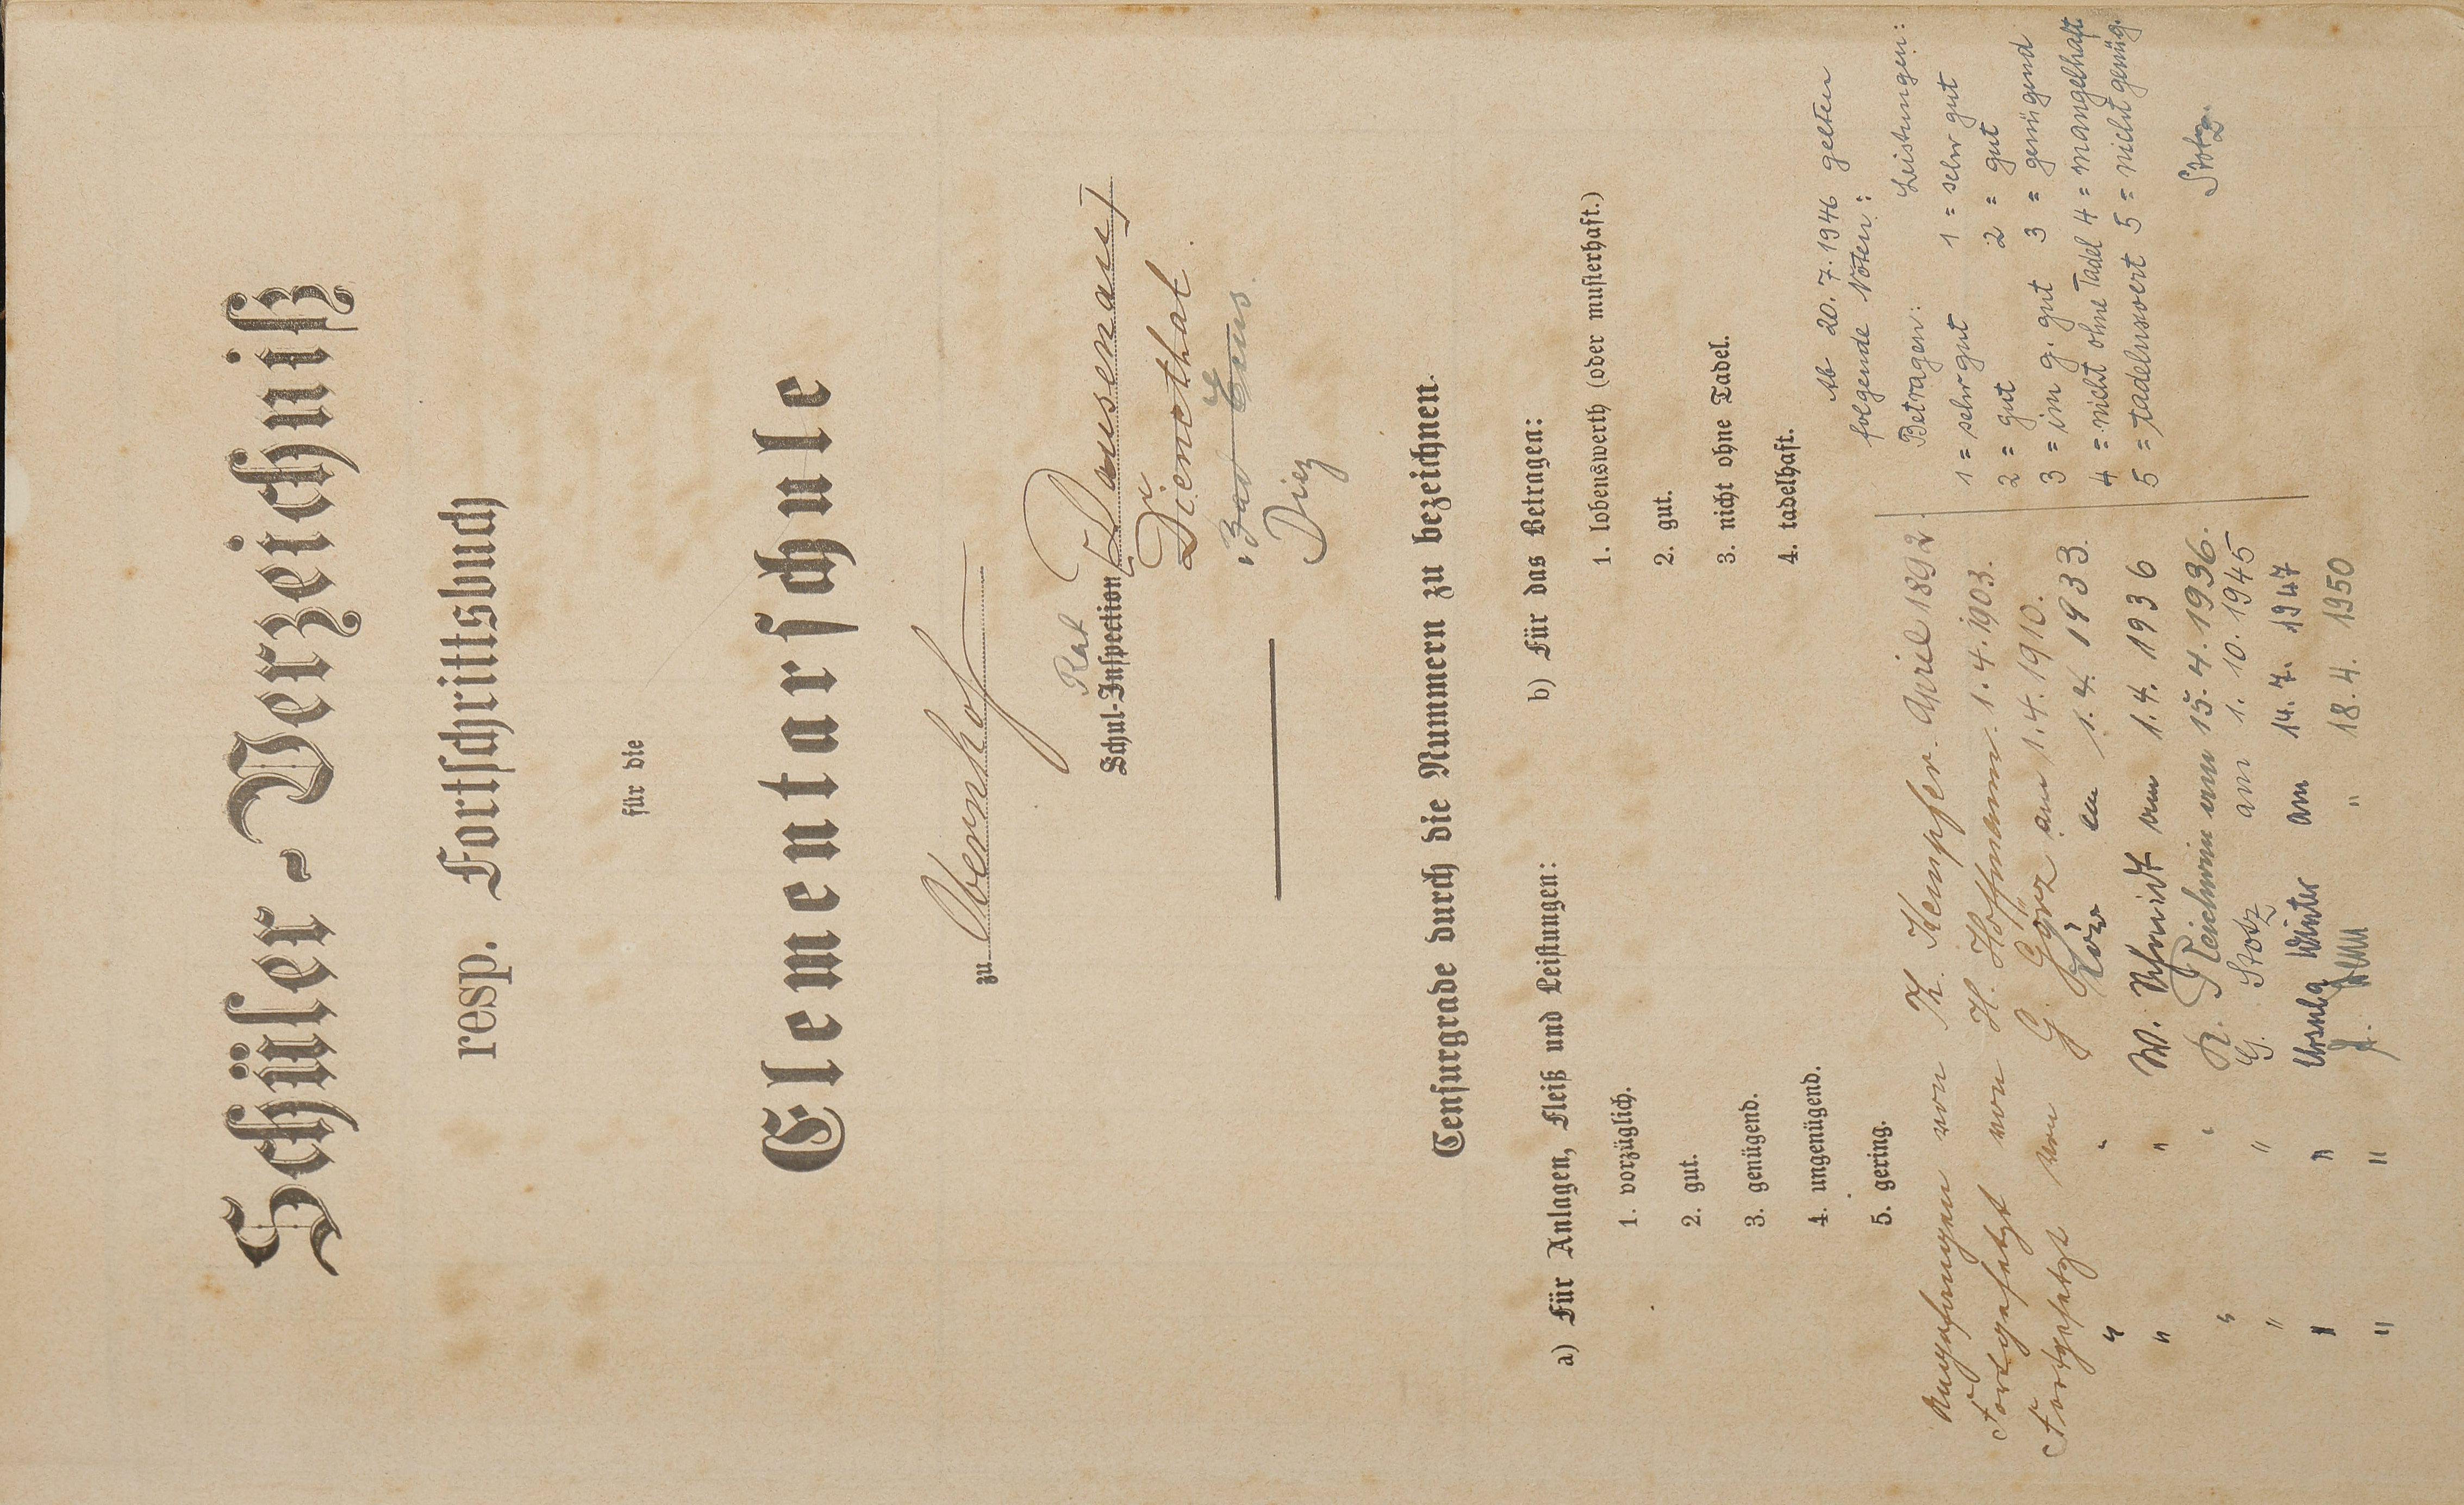 Schüler-Verzeichniß
resp. Fortschrittsbuch
für die
Elementarschule
zu Obernhof
Rat
Schul-Inspection Dausenau
Dienethal
Bad Ems
Diez
Censurgrade durch die Nummern zu bezeichnen.
a) Für Anlagen, Fleiß und Leistungen:
1. vorzüglich.
2. gut.
3. genügend.
4. ungenügend.
5. gering.
b) Für das Betragen:
1. lobenswerth (oder musterhaft.)
2. gut.
3. nicht ohne Tadel.
4. tadelhaft.
Angefangen von Th. Kempfer April 1892.
Fortgesetzt von H. Hoffmann 1. 4. 1903.
Fortgesetzt von G. Görz am 1. 4. 1910.
" " 1. 4. 1933.
" " W. Schmidt am 1. 4. 1936
" " R. Reichwein am 15. 4. 1936.
" " G. Stotz am 1. 10. 1945
" " Ursula Winter am 14. 7. 1947
" " " 18. 4. 1950
Ab 20. 7. 1946 gelten
folgende Noten:
Betragen: Leistungen:
1 = sehr gut 1 = sehr gut
2 = gut 2 = gut
3 = im g. gut 3 = genügend
4 = nicht ohne Tadel 4 = mangelhaft
5 = tadelnswert 5 = nicht genüg.
Stotz